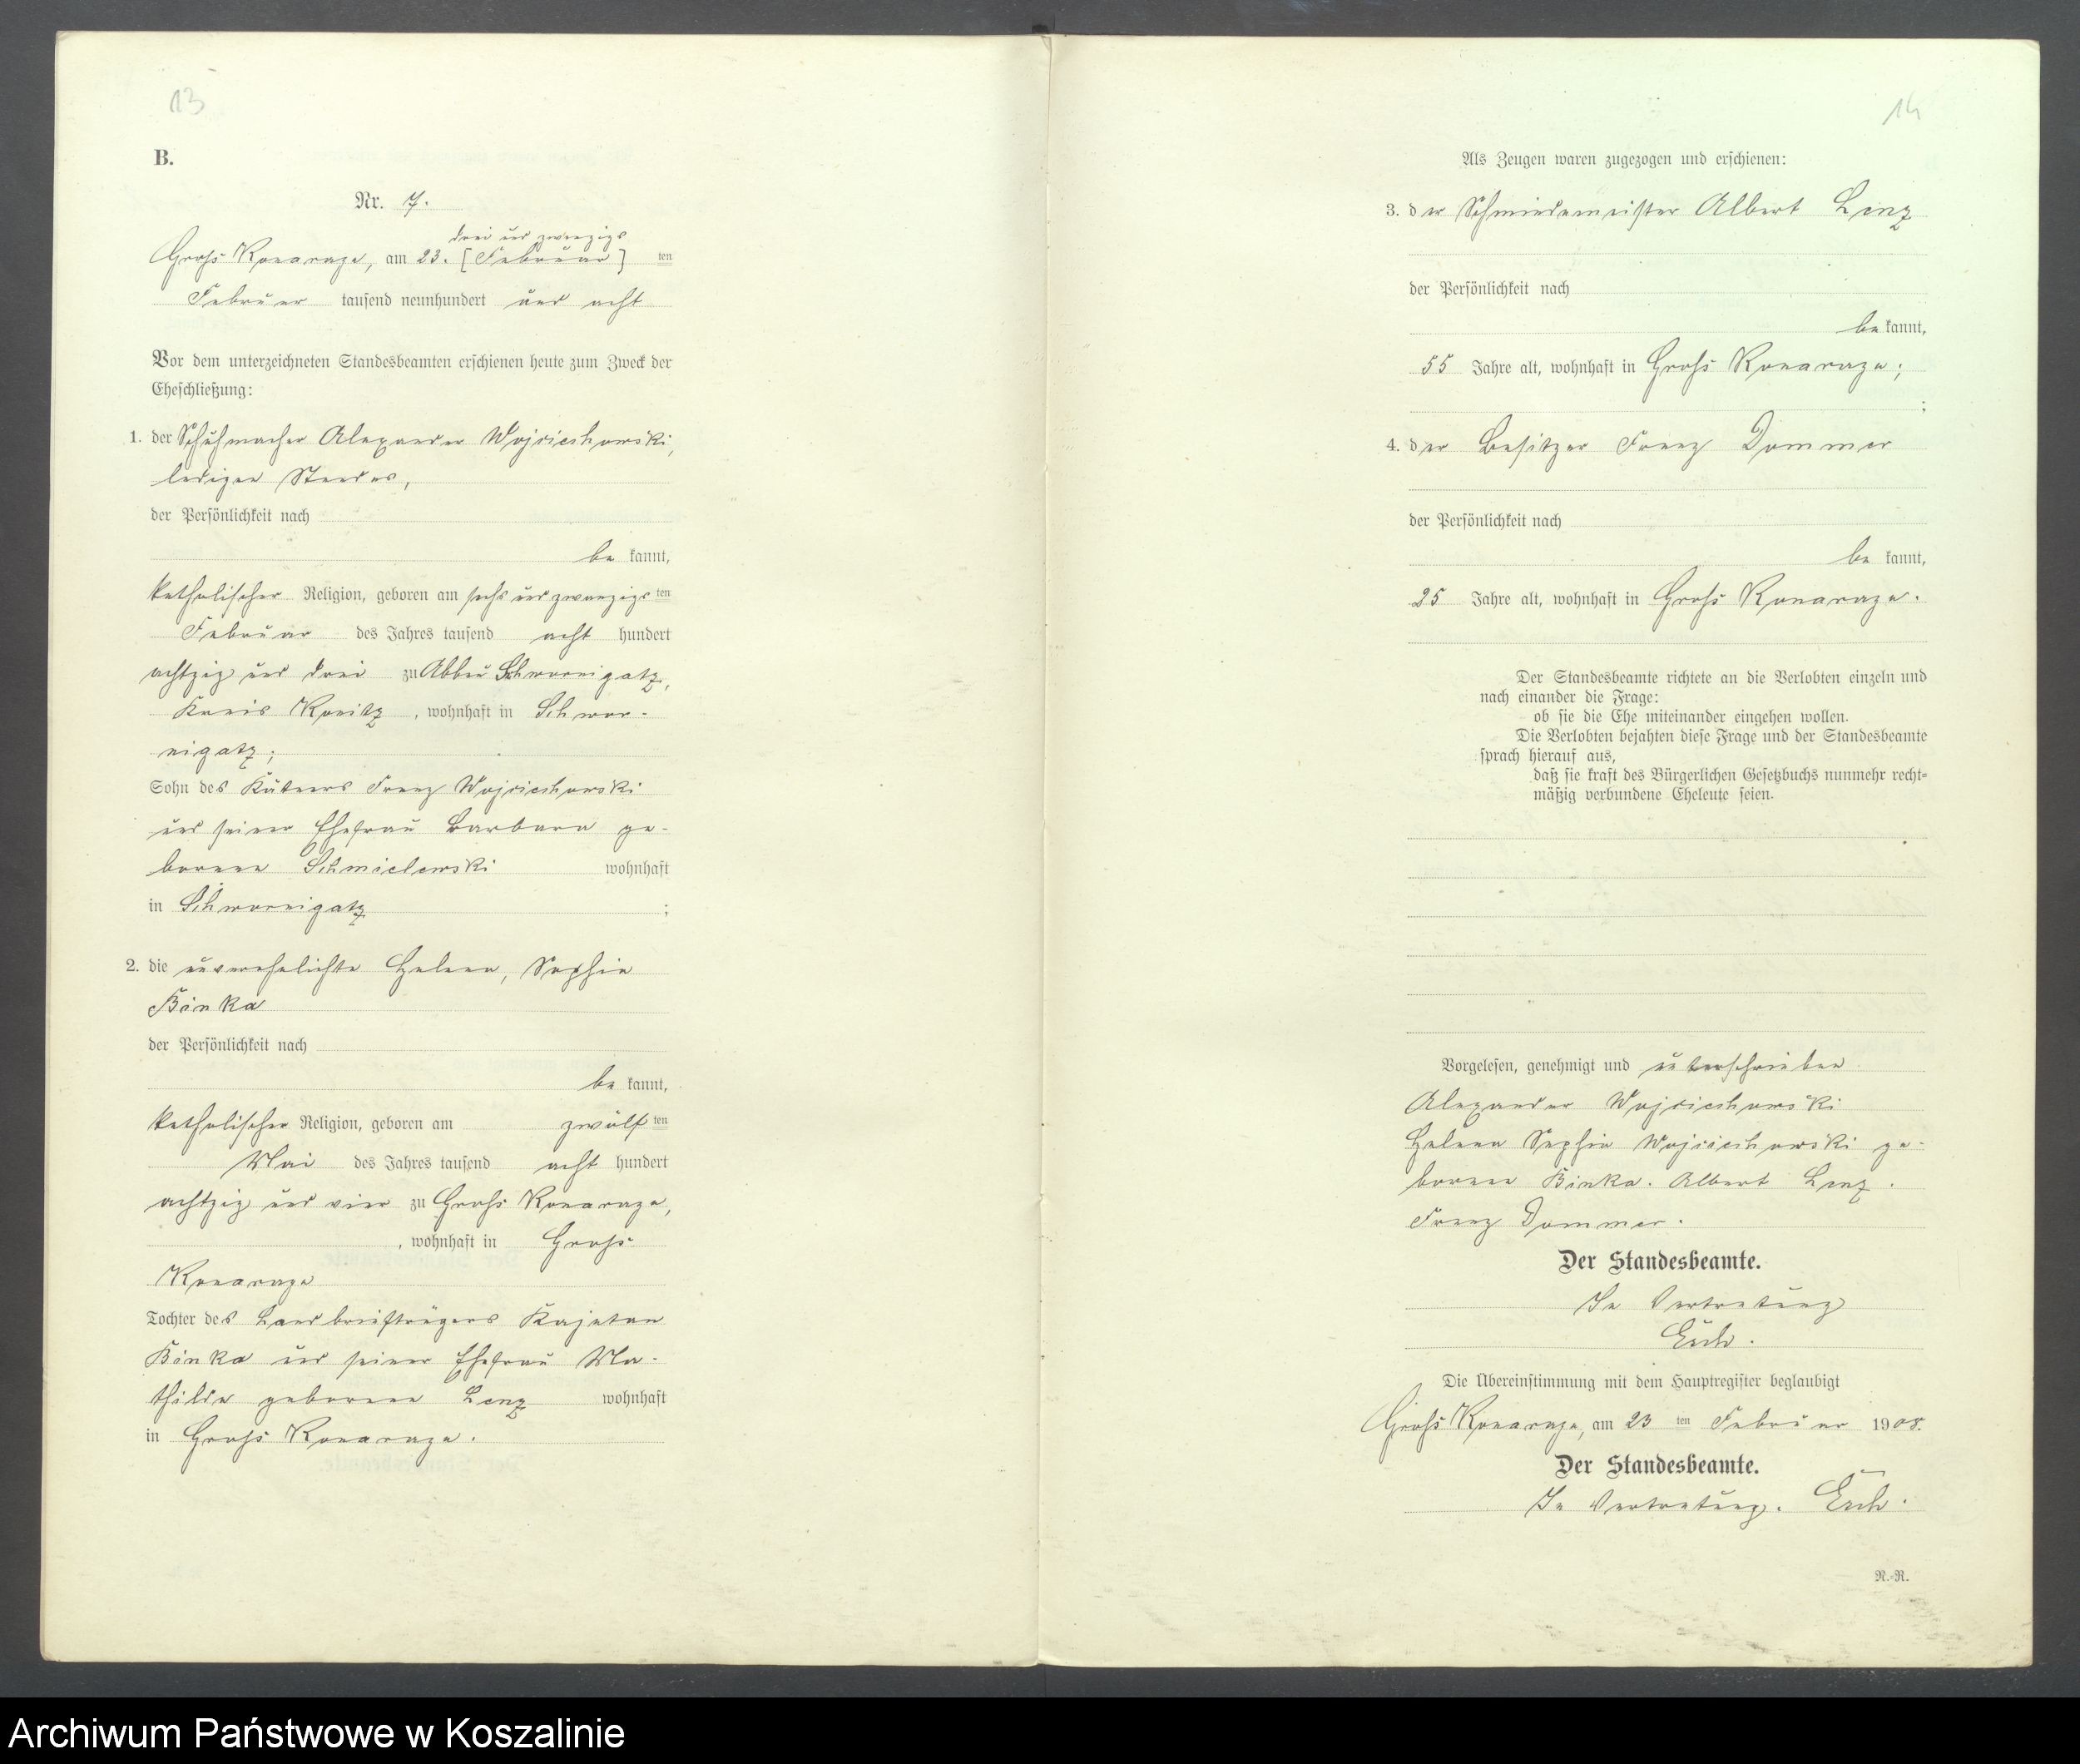 13
B.
Nr. 7.
drei und zwanzigs
Groß Konarazyn, am 23. [Februar] ten
Februar tausend neunhundert und acht
Vor dem unterzeichneten Standesbeamten erschienen heute zum Zweck der
Eheschließung:
1. der Schuhmacher Alexander Wojciechowski,
ledigen Standes,
der Persönlichkeit nach
be kannt,
katholischer Religion, geboren am sechs und zwanzigs ten
Februar des Jahres tausend acht hundert
achtzig und drei zu Abbau Schwornigatz,
Kreis Konitz, wohnhaft in Schwor-
nigatz;
Sohn des Kätners Franz Wojciechowski
und seiner Ehefrau Barbara ge-
borenen Schmielewski wohnhaft
in Schwornigatz;
2. die unverehelichte Helene, Sophie
Binka
der Persönlichkeit nach
be kannt,
katholischer Religion, geboren am zwölf ten
Mai des Jahres tausend acht hundert
achtzig und vier zu Groß Konarazyn,
, wohnhaft in Groß
Konarazyn
Tochter des Landbriefträgers Kajetan
Binka und seiner Ehefrau Ma-
thilde geborenen Lenz wohnhaft
in Groß Konarazyn.
14
Als Zeugen waren zugezogen und erschienen:
3. der Schmiedemeister Albert Lenz
der Persönlichkeit nach
be kannt,
55 Jahre alt, wohnhaft in Groß Konarazyn;
;
4. der Besitzer Franz Dommer
der Persönlichkeit nach
be kannt,
25 Jahre alt, wohnhaft in Groß Konarazyn.
Der Standesbeamte richtete an die Verlobten einzeln und
nach einander die Frage:
ob sie die Ehe miteinander eingehen wollen.
Die Verlobten bejahten diese Frage und der Standesbeamte
sprach hierauf aus,
daß sie kraft des Bürgerlichen Gesetzbuchs nunmehr recht-
mäßig verbundene Eheleute seien.
Vorgelesen, genehmigt und unterschrieben
Alexander Wojciechowski
Helene Sophie Wojciechowski ge-
borene Binka. Albert Lenz.
Franz Dommer.
Der Standesbeamte.
In Vertretung
Die Übereinstimmung mit dem Hauptregister beglaubigt
Groß Konarazyn, am 23 ten Februar 1908.
Der Standesbeamte.
In Vertretung.
N.-R.
Archiwum Państwowe w Koszalinie